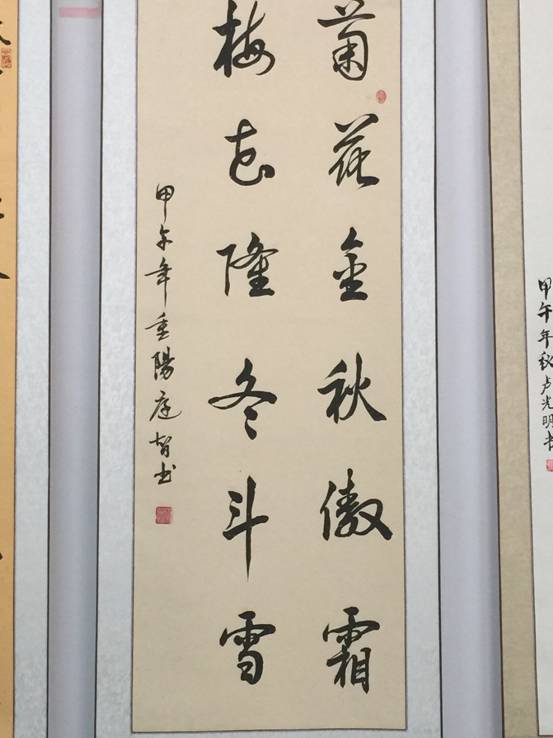 菊花金秋傲霜
梅花隆冬斗雪
甲午年重陽庭智书
甲午年秋卢光明书